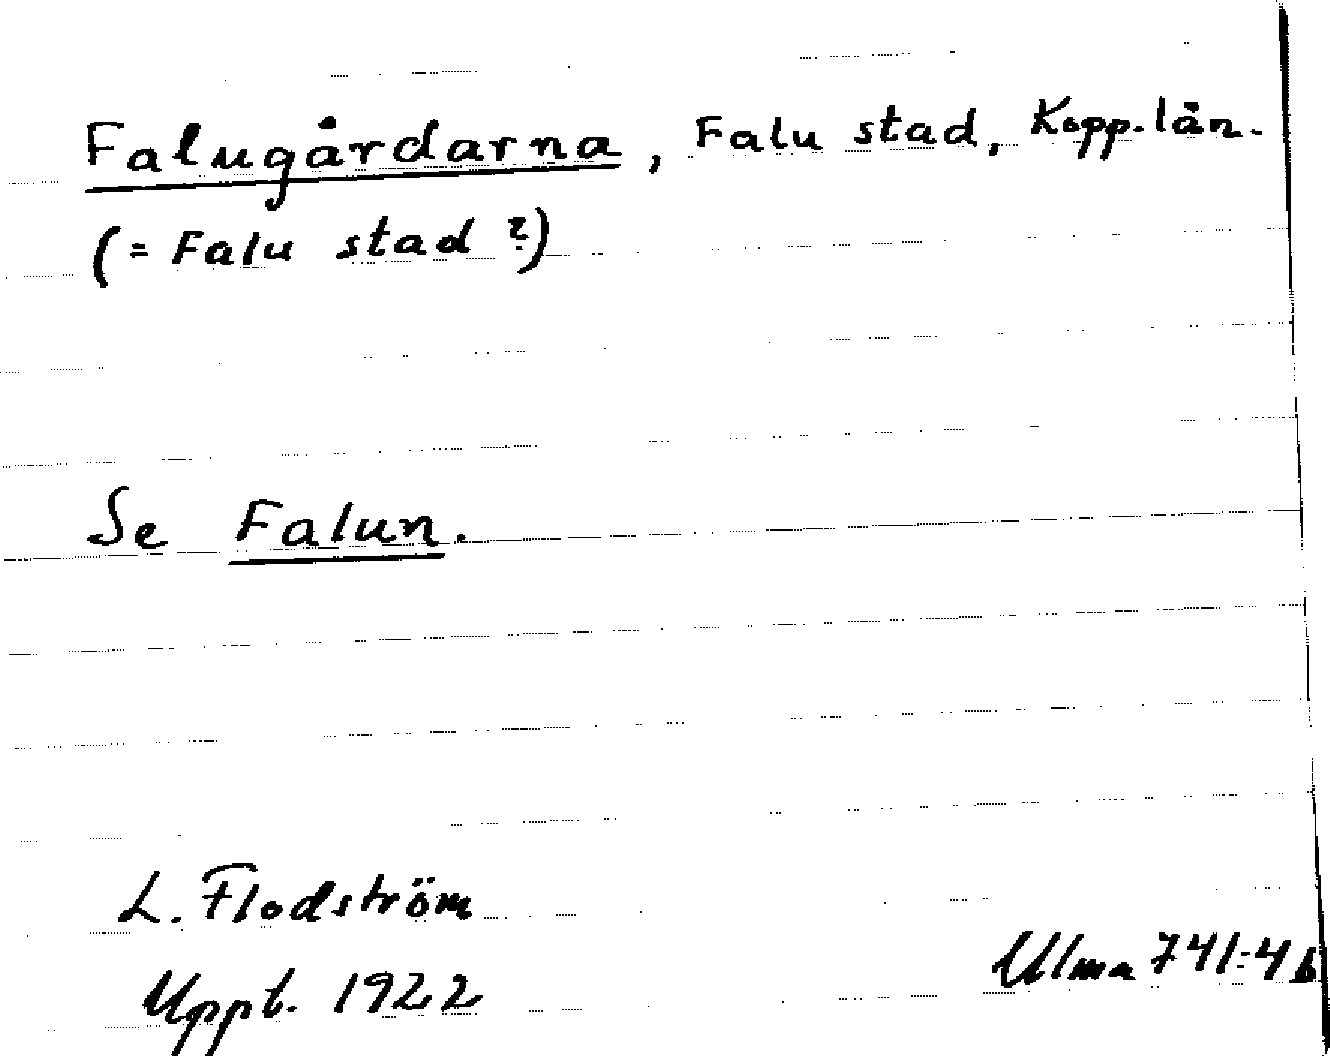 Falugårdarna, Falu stad, Kopp. län.
(= Falu stad ?)
Se Falun.
L. Flodström
Uppt. 1922
Ulma 741:4b